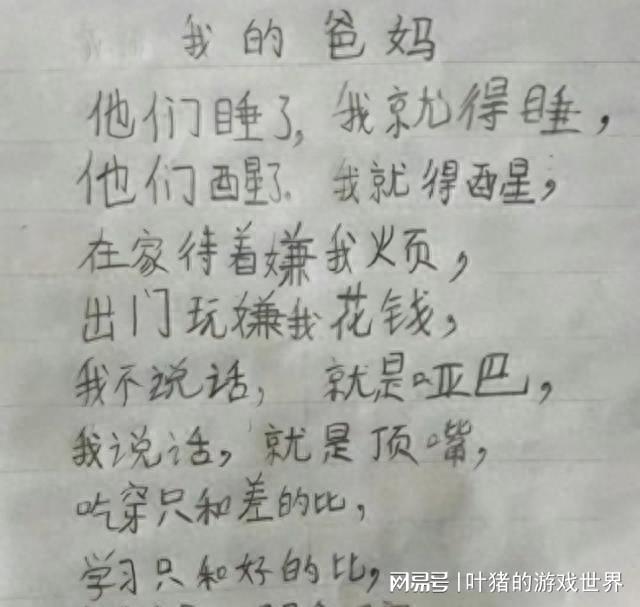 我的爸妈
他们睡了,我就得睡,
他们醒了.我就得醒,
在家待着嫌我烦,
出门玩嫌我花钱,
我不说话,就是哑巴,
我说话,就是顶嘴,
吃穿只和差的比,
学习只和好的比,
网易号|叶猪的游戏世界